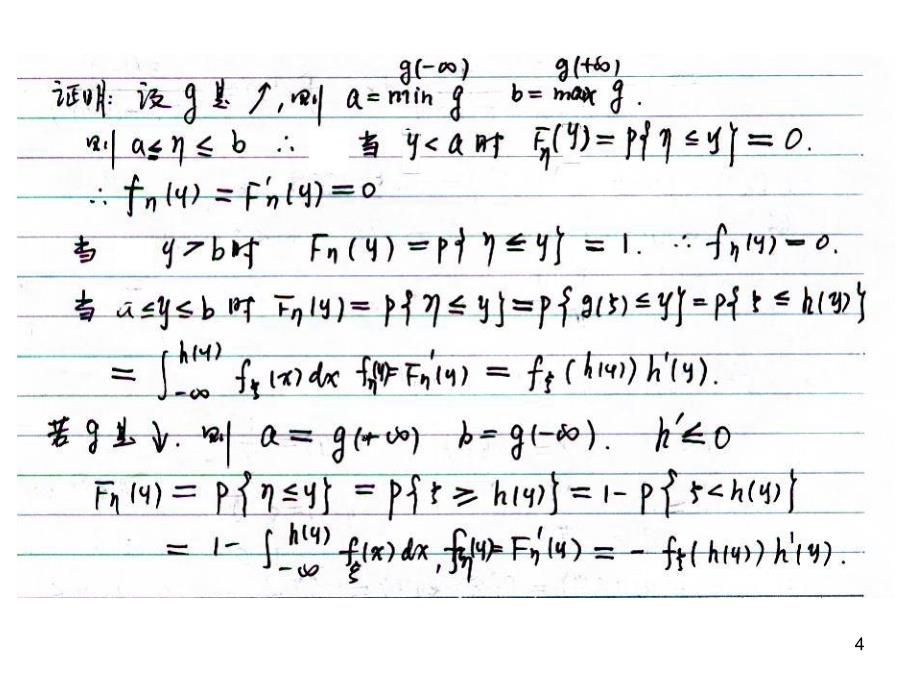 g(-∞) g(+∞)
证明: 设 g 是 ↑, 则 a = min g b = max g.
则 a ≤ η ≤ b ∴ 当 y < a 时 Fη(y) = P{η ≤ y} = 0.
∴ fη(y) = F'η(y) = 0
当 y > b 时 Fη(y) = P{η ≤ y} = 1. ∴ fη(y) = 0.
当 a ≤ y ≤ b 时 Fη(y) = P{η ≤ y} = P{g(ξ) ≤ y} = P{ξ ≤ h(y)}
= ∫_{-∞}^{h(y)} fξ(x) dx fη(y) = F'η(y) = fξ(h(y)) h'(y).
若 g 是 ↓. 则 a = g(+∞) b = g(-∞). h' ≤ 0
Fη(y) = P{η ≤ y} = P{ξ ≥ h(y)} = 1 - P{ξ < h(y)}
= 1 - ∫_{-∞}^{h(y)} fξ(x) dx, fη(y) = F'η(y) = - fξ(h(y)) h'(y).
4